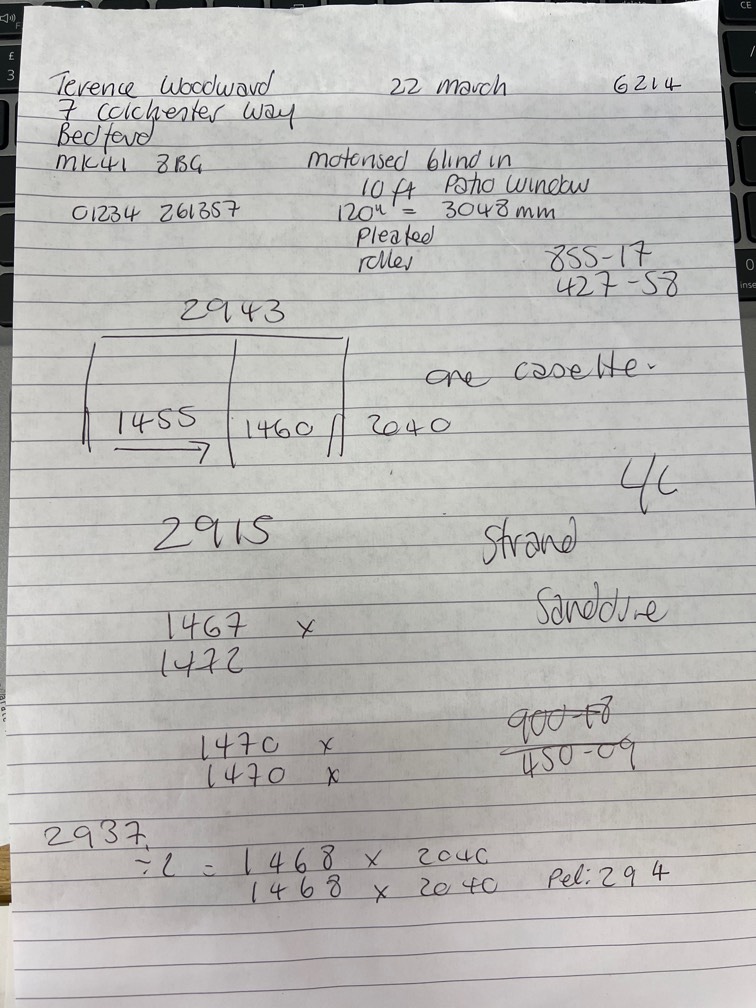 Terence Woodward 22 march 6214
7 Colchester Way
Bedford
MK41 8BG motorised blind in
10 ft Patio Window
01234 261357 120" = 3048 mm
Pleated
roller 855-17
427-58
2943
one casette.
1455 1460 2040
4C
2915 Strand
Sanddune
1467 x
1472
900-18
1470 x 450-09
1470 x
2937
÷2 = 1468 x 2040
1468 x 2040 Pel: 294